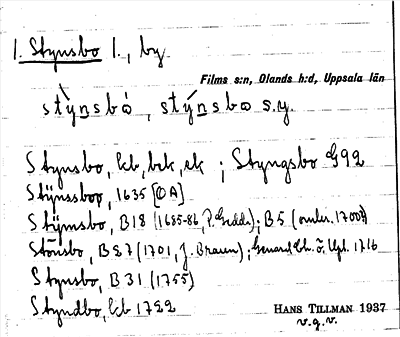 1. Stynsbo 1., by.
Films s:n, Olands h:d, Uppsala län
stỳnsbò, stýnsbo s.y.
Stynsbo, kb, bek, ek ; Styngsbo G92
Stÿnssboo, 1635 [OA]
Stÿmsbo, B18 (1685-86, P. Gedda); B5 (omkr. 1700)
Stönsbo, B27 (1701, J. Braun); Geneal. ö. Upl. 1716
Stynsbo, B31 (1755)
Styndbo, kb 1722
HANS TILLMAN 1937
v.g.v.